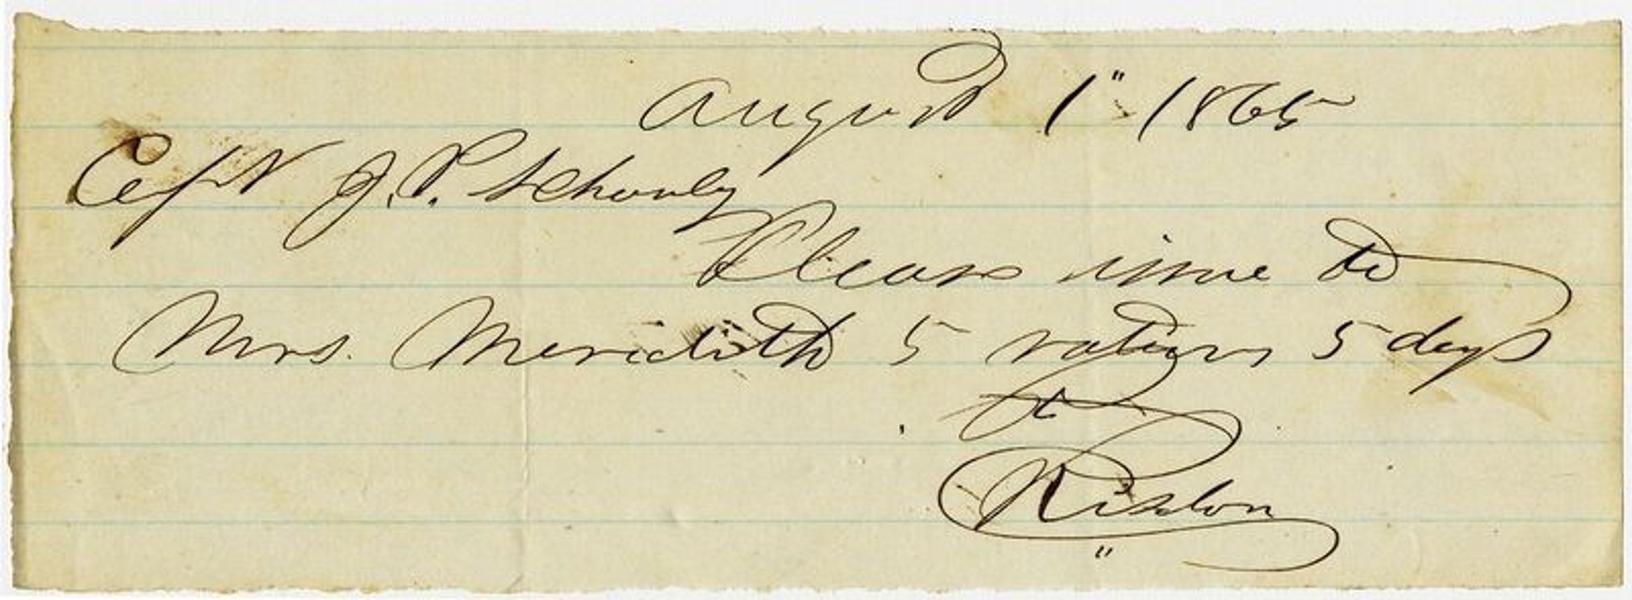 August 1" 1865
Capt J. P. Schouly
Please issue to
Mrs. Meridith 5 rations 5 days
Risdon